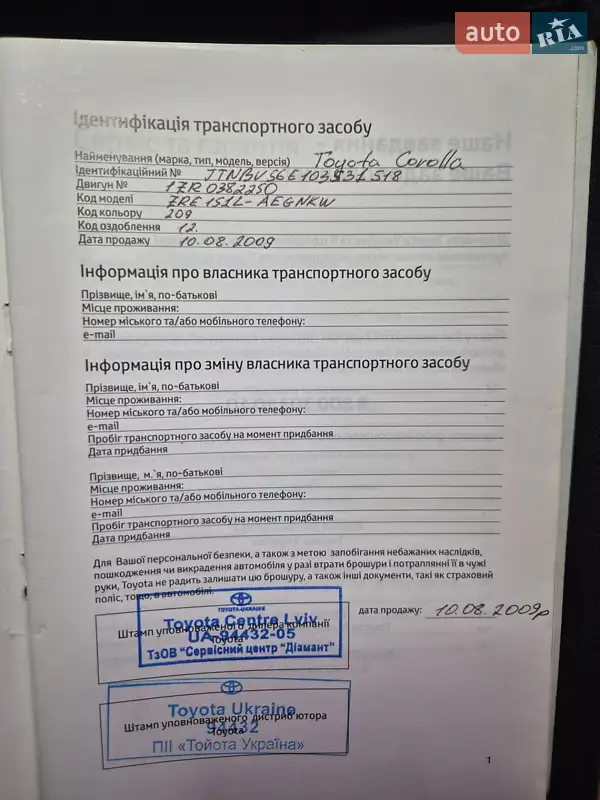 auto RIA.com
Ідентифікація транспортного засобу
Найменування (марка, тип, модель, версія) Toyota Corolla
Ідентифікаційний № JTNBV56E103531518
Двигун № 1ZR 0382250
Код моделі ZRE151L-AEGNKW
Код кольору 209
Код оздоблення 12.
Дата продажу 10.08.2009
Інформація про власника транспортного засобу
Прізвище, ім`я, по-батькові
Місце проживання:
Номер міського та/або мобільного телефону:
e-mail
Інформація про зміну власника транспортного засобу
Прізвище, ім`я, по-батькові
Місце проживання:
Номер міського та/або мобільного телефону:
e-mail
Пробіг транспортного засобу на момент придбання
Дата придбання
Прізвище, м.`я, по-батькові
Місце проживання:
Номер міського та/або мобільного телефону:
e-mail
Пробіг транспортного засобу на момент придбання
Дата придбання
Для Вашої персональної безпеки, а також з метою запобігання небажаних наслідків,
пошкодження чи викрадення автомобіля у разі втрати брошури і потраплянні її в чужі
руки, Toyota не радить залишати цю брошуру, а також інші документи, такі як страховий
поліс, тощо, в автомобілі.
TOYOTA-UKRAINE
Toyota Centre Lviv
дата продажу: 10.08.2009р
Штамп уповноваженого дилера компанії
UA-94432-05
Toyota
ТзОВ "Сервісний центр "Діамант"
Toyota Ukraine
Штамп уповноваженого дистриб`ютора
94432
Toyota
ПІІ «Тойота Україна»
1